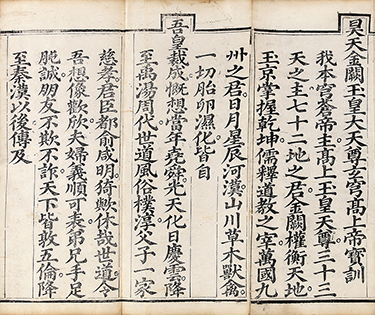 昊天金闕玉皇大天尊玄宮高上帝寶訓
我本宮蒼帝主高上玉皇天尊三十三
天之主七十二地之君金闕權衡天地
玉京掌握乾坤儒釋道教之宰萬國九
州之君日月星辰河漢山川草木獸禽
一切胎卵濕化皆自
吾皇裁成慨想當年堯舜光天化日慶雲降
至禹湯周代世道風俗樸淳父子一家
慈孝君臣都俞咸明猗歟休哉世道令
吾想像歎欣夫婦義順可表弟兄手足
肫誠朋友不欺不詐天下皆敦五倫降
至秦漢以後傳及